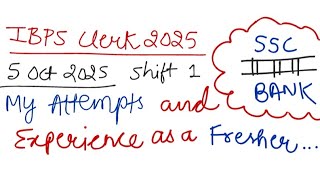 IBPS Clerk 2025
5 Oct 2025 Shift 1
My Attempts and
Experience as a Fresher...
SSC
BANK